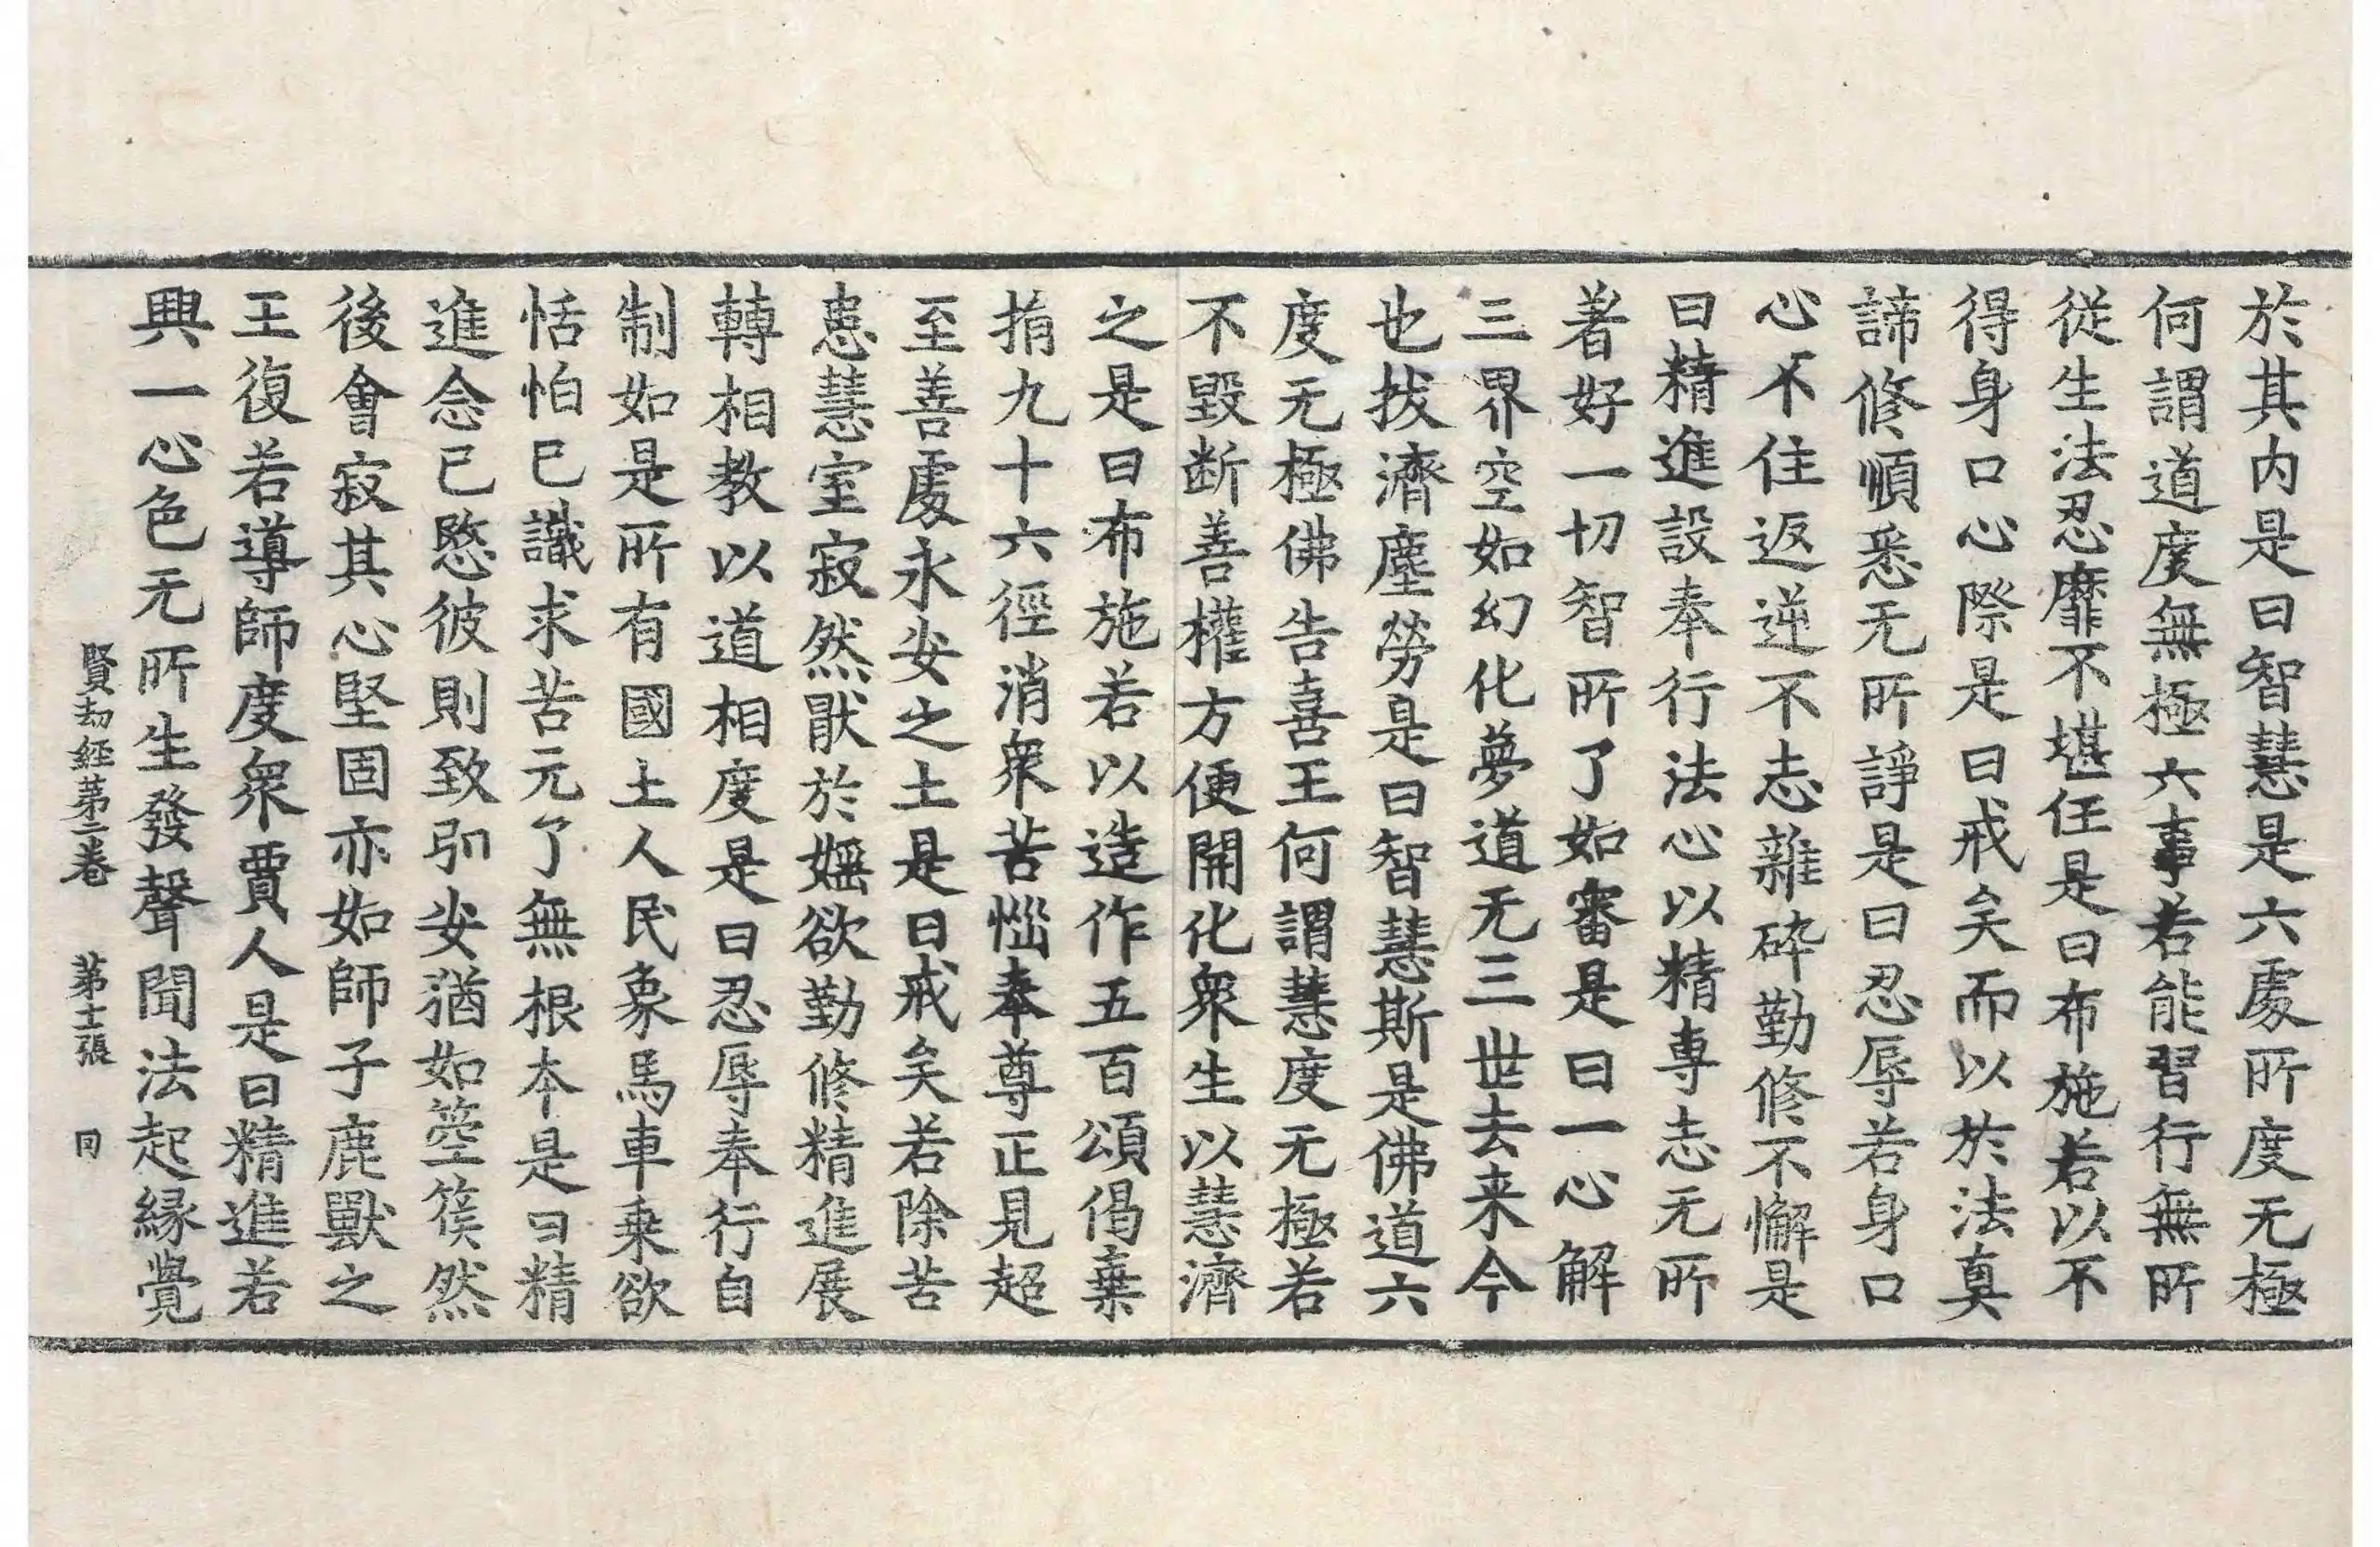 於其内是曰智慧是六處所度无極
何謂道度無極六事若能習行無所
從生法忍靡不堪任是曰布施若以不
得身口心際是曰戒矣而以於法真
諦修順悉无所諍是曰忍辱若身口
心不住返逆不志雜碎勤修不懈是
曰精進設奉行法心以精專志无所
著好一切智所了如審是曰一心解
三界空如幻化夢道无三世去来今
也拔濟塵勞是曰智慧斯是佛道六
度无極佛告喜王何謂慧度无極若
不毀断善權方便開化衆生以慧濟
之是曰布施若以造作五百頌偈棄
捐九十六徑消衆苦惱奉尊正見超
至善處永安之土是曰戒矣若除苦
患慧室寂然猒於婬欲勤修精進展
轉相教以道相度是曰忍辱奉行自
制如是所有國土人民象馬車乗欲
恬怕已識求苦元了無根本是曰精
進念已愍彼則致卾安猶如箜篌然
後會寂其心堅固亦如師子鹿獸之
王復若導師度衆賈人是曰精進若
興一心色无所生發聲聞法起縁覺
賢劫經第二卷 第十二張 同